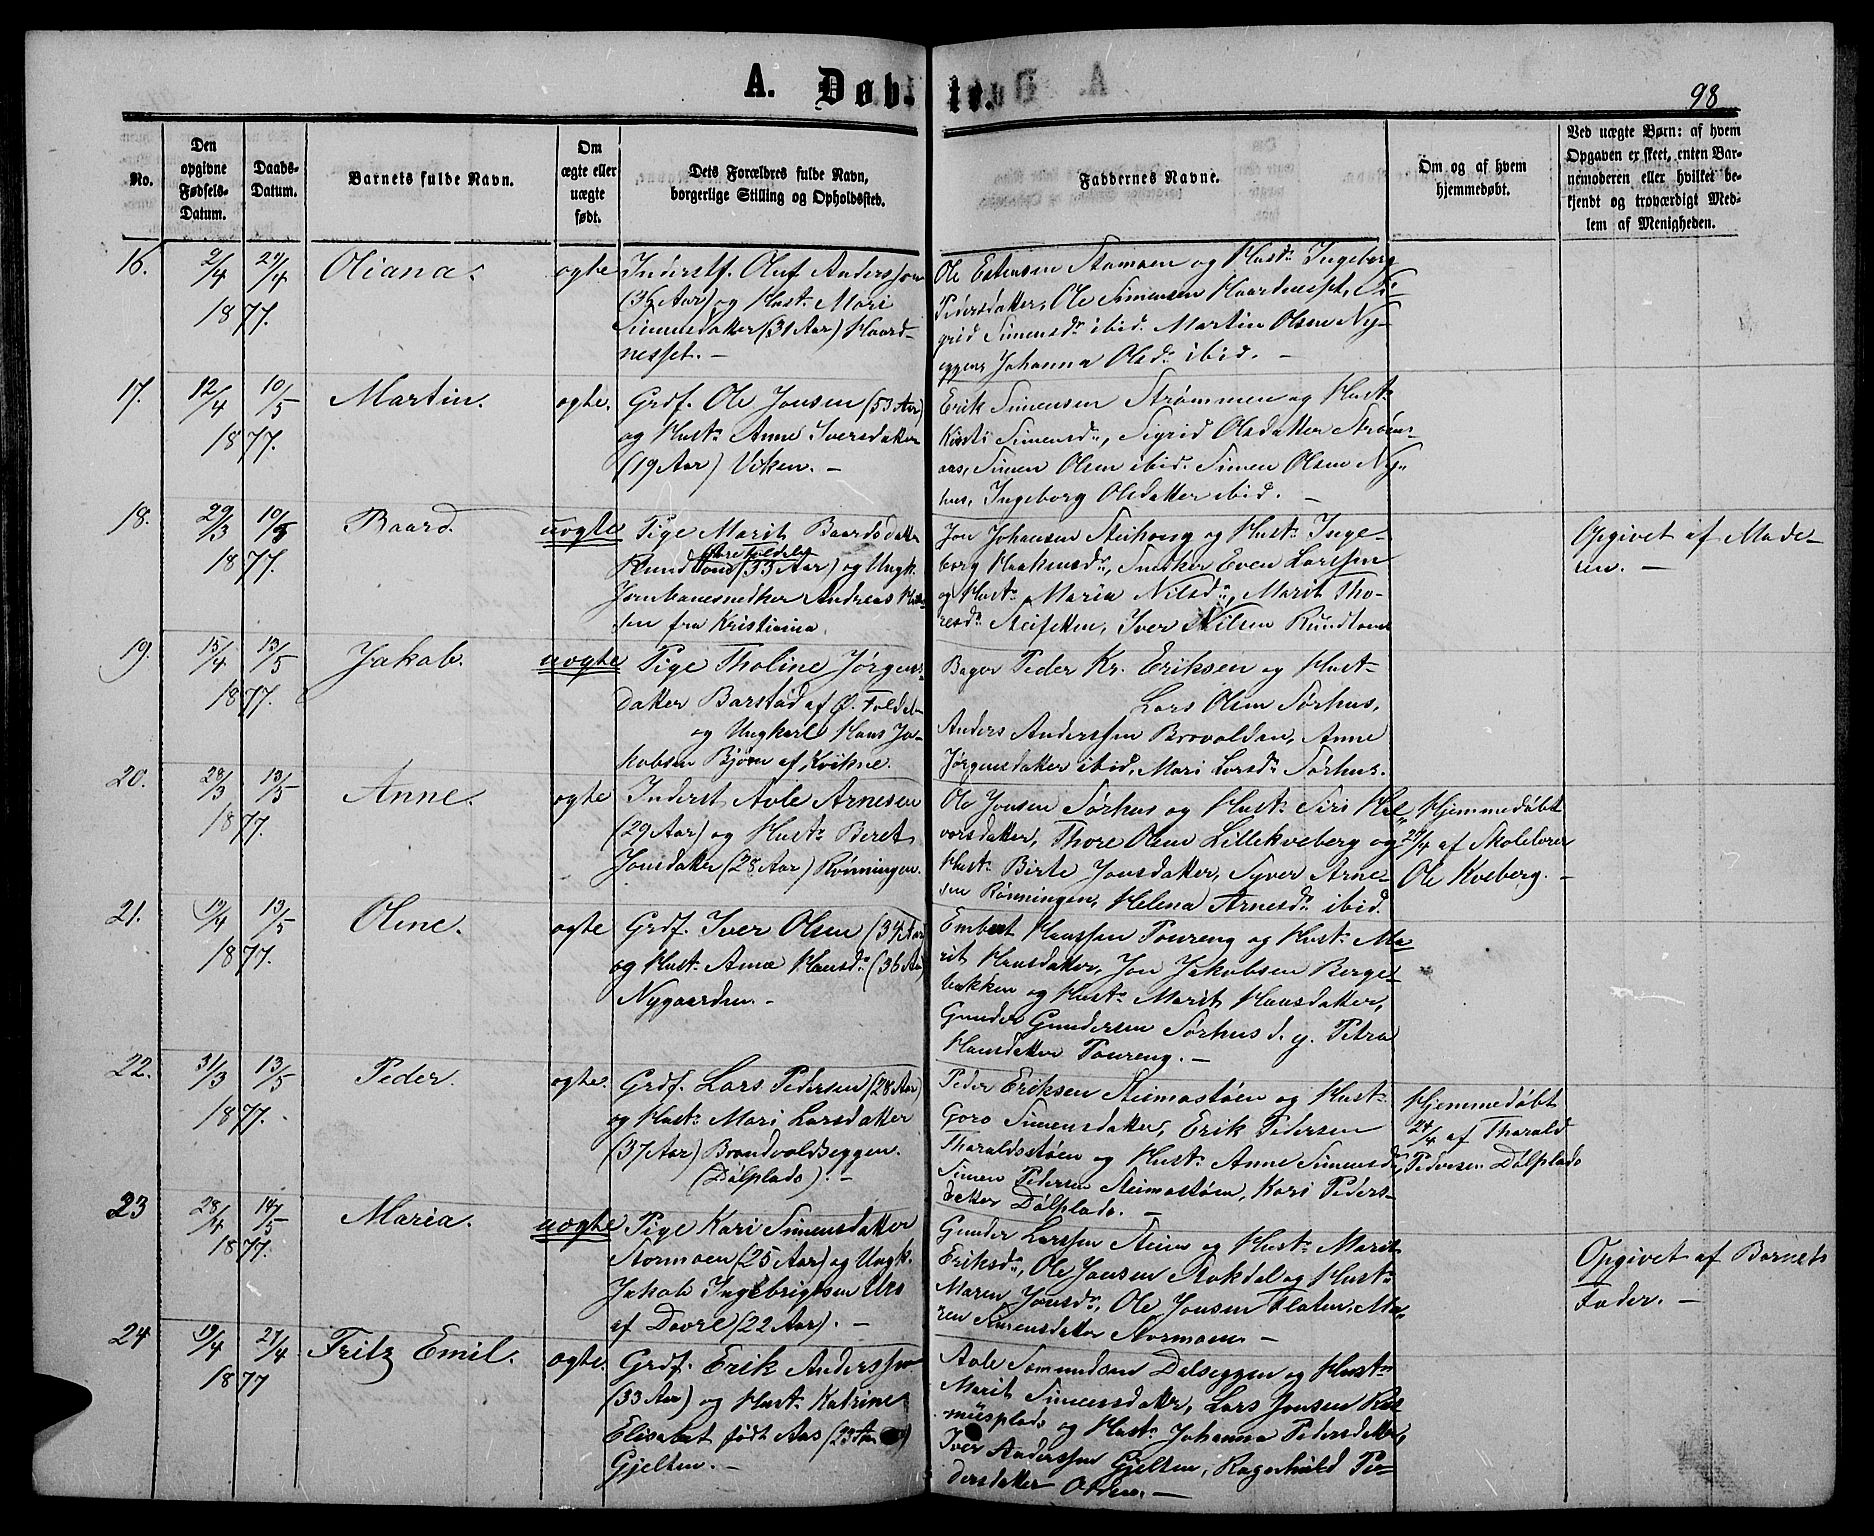 A. Døb- te.
98
No.
Den opgivne Fødsels-Datum.
Daabs-Datum.
Barnets fulde Navn.
Om ægte eller uægte født.
Dets Forældres fulde Navn, borgerlige Stilling og Opholdssted.
Faddernes Navne.
Om og af hvem hjemmedøbt.
Ved uægte Børn: af hvem Opgaven er skeet, enten Barnemoderen eller hvilket bekjendt og troværdigt Medlem af Menigheden.
16. 2/4 1877. Oliana. ægte
Inderstf. Oluf Anderssen
(36 Aar) og Hustr. Mari
Simensdatter (31 Aar) Haard-
nesset. —
Ole Estensen Stamoen og Hustr. Ingeborg
Pedersdatter, Ole Simensen Haardnesset, Si-
grid Simensdr. ibid. Martin Olsen Ny-
eggen, Johanna Olsdr. ibid. —
17. 12/4 10/5 1877. Martin. ægte.
Grdf. Ole Jonsen (53 Aar)
og Hustr. Anne Iversdatter
(19 Aar) Viken. —
Erik Simensen Strømmen og Hustr.
Kirsti Simensd., Sigrid Olsdatter
Simen Olsen ibid. Simen Olsen Ny-
hus, Ingeborg Olsdatter ibid. —
18. 29/3 10/5 1877. Baard. uægte
Pige Marit Baardsdatter
(33 Aar) og Ungk.
Jernbanesnedker Andreas
fra Kristiania.
Jon Johansen og Hustr. Inge-
borg Haakensdr., Snedker Even Larssen
og Hustr. Maria Nilsdr., Marit Tho-
resdr. Iver Nilsen
Opgivet af Mode-
ren. —
19. 15/4 13/5 1877. Jakob. uægte
Pige Tholine Jørgens-
datter Barstad af Ø. Foldal
og Ungkarl Hans Ja-
kobsen Bjørn af Kvikne.
Bager Peder Kr. Eriksen og Hust-
Lars Olsen Sørhus,
Anders Anderssen Brovolden, Anne
Jørgensdatter ibid, Mari Larsdr. Sørhus.
20. 28/3 13/5 1877. Anne. ægte
Inderst Avle Arnesen
(29 Aar) og Hustr. Beret
Jonsdatter (28 Aar) Rønningen.
Ole Jonsen Sørhus og Hustr. Siri Hal-
vorsdatter, Thore Olsen Lillekveberg og
Hustr. Birte Jonsdatter, Syver Arne-
sen Rønningen, Helena Arnesdr. ibid.
Hjemmedøbt
af Skolelærer
Ole Kveberg. —
21. 13/5 1877. Oline. ægte
Grdf. Iver Olsen (34 Aar)
og Hustr. Anne Hansdr. (36 Aar)
Nygaarden. —
Embert Hanssen Toureng og Hustr. Ma-
rit Hansdatter, Jon Jakobsen Berge-
bakken og Hustr. Marit Hansdatter,
Gunder Gundersen Sørhus d. y. Petra
Hansdatter Toureng. —
22. 31/3 13/5 1877. Peder. ægte.
Grdf. Lars Pedersen (28 Aar)
og Hustr. Mari Larsdatter
(37 Aar) Brandvoldseggen.
(Dølplads). —
Peder Eriksen Steimostøen og Hustr.
Goro Simensdatter, Erik Pedersen
Tharaldsstøen og Hustr. Anne Simensdr.,
Simen Pedersen Steimostøen, Kari Peders-
datter Dølplads. —
Hjemmedøbt
24/4 af Tharald
Pedersen Dølplads
23 28/4 14/5 1877. Maria. uægte
Pige Kari Simensdatter
Stormoen (25 Aar) og Ungk.
Jakob Ingebrigtsen Urs
af Dovre (22 Aar). —
Gunder Larssen Steien og Hustr. Marit
Eriksdr., Ole Jonsen Stokdal og Hustr.
Maren Jonsdr., Ole Jonsen Floten, Ma-
ren Simensdatter Stormoen —
Opgivet af Barnets
Fader. —
24. 19/4 27/4 1877 Fritz Emil. ægte.
Grdf. Erik Anderssen
(33 Aar) og Hustr. Katrine
Elisabet født Aas (23 Aar)
Gjelten. —
Avle Somundsen Dalseggen og Hustr.
Marit Simensdatter, Lars Jonsen
og Hustr. Johanna Pedersdatter,
Iver Anderssen Gjelten, Ragenhild Pe-
dersdatter —